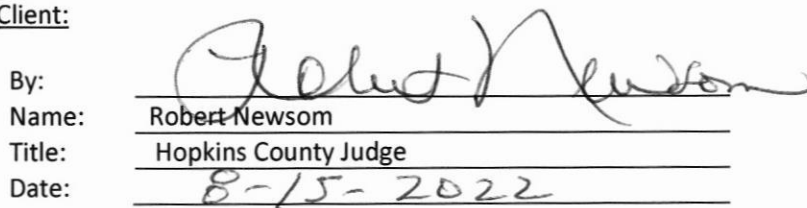 Client:
By: Robert Newsom
Name: Robert Newsom
Title: Hopkins County Judge
Date: 8-15-2022